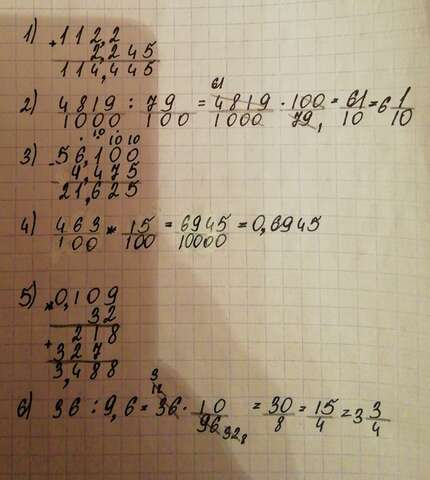 1) + 112,2
2,245
114,445
2) 4819/1000 : 79/100 = 4819/1000 · 100/79 = 61/10 = 6 1/10
61 1
3) - 56,100
4,475
21,625
4) 463/100 * 15/100 = 6945/10000 = 0,6945
5) * 0,109
32
218
+ 327
3,488
6) 36 : 9,6 = 36 · 10/96 = 30/8 = 15/4 = 3 3/4
3
12
32 8